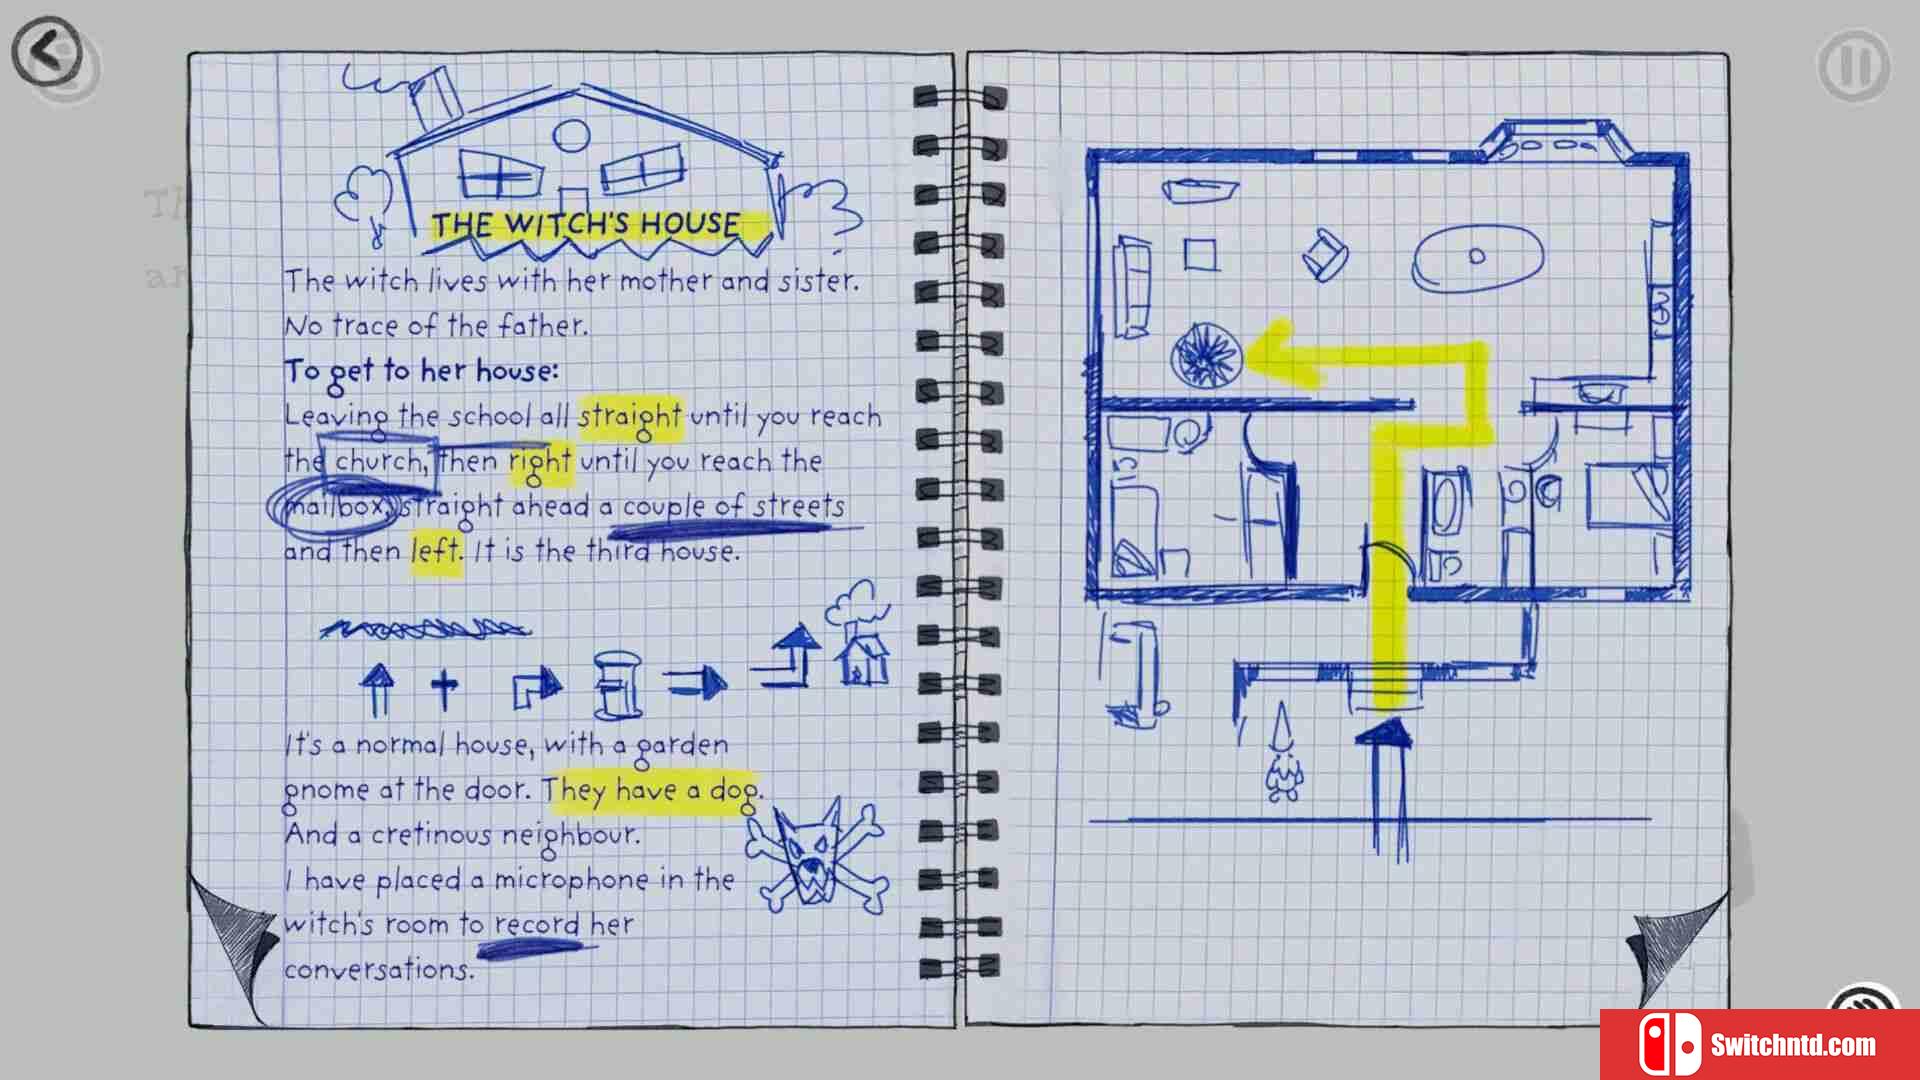 THE WITCH'S HOUSE
The witch lives with her mother and sister.
No trace of the father.
To get to her house:
Leaving the school all straight until you reach
the church, then right until you reach the
mailbox, straight ahead a couple of streets
and then left. It is the third house.
It's a normal house, with a garden
gnome at the door. They have a dog.
And a cretinous neighbour.
I have placed a microphone in the
witch's room to record her
conversations.
Switchntd.com